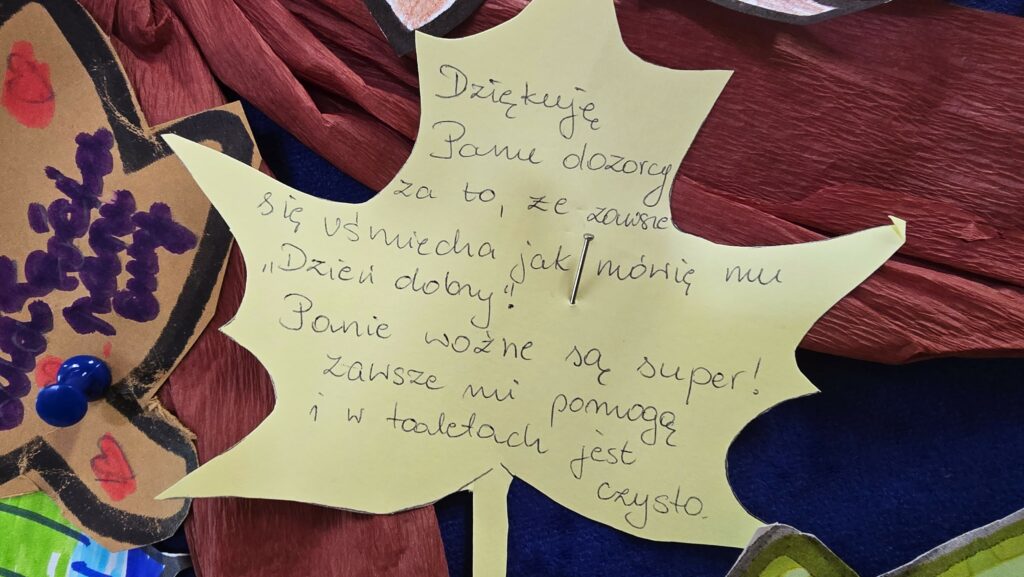 Dziękuję
Panu dozorcy
za to, że zawsze
się uśmiecha jak mówię mu
„Dzień dobry".
Panie woźne są super!
zawsze mi pomogą
i w toaletach jest
czysto.